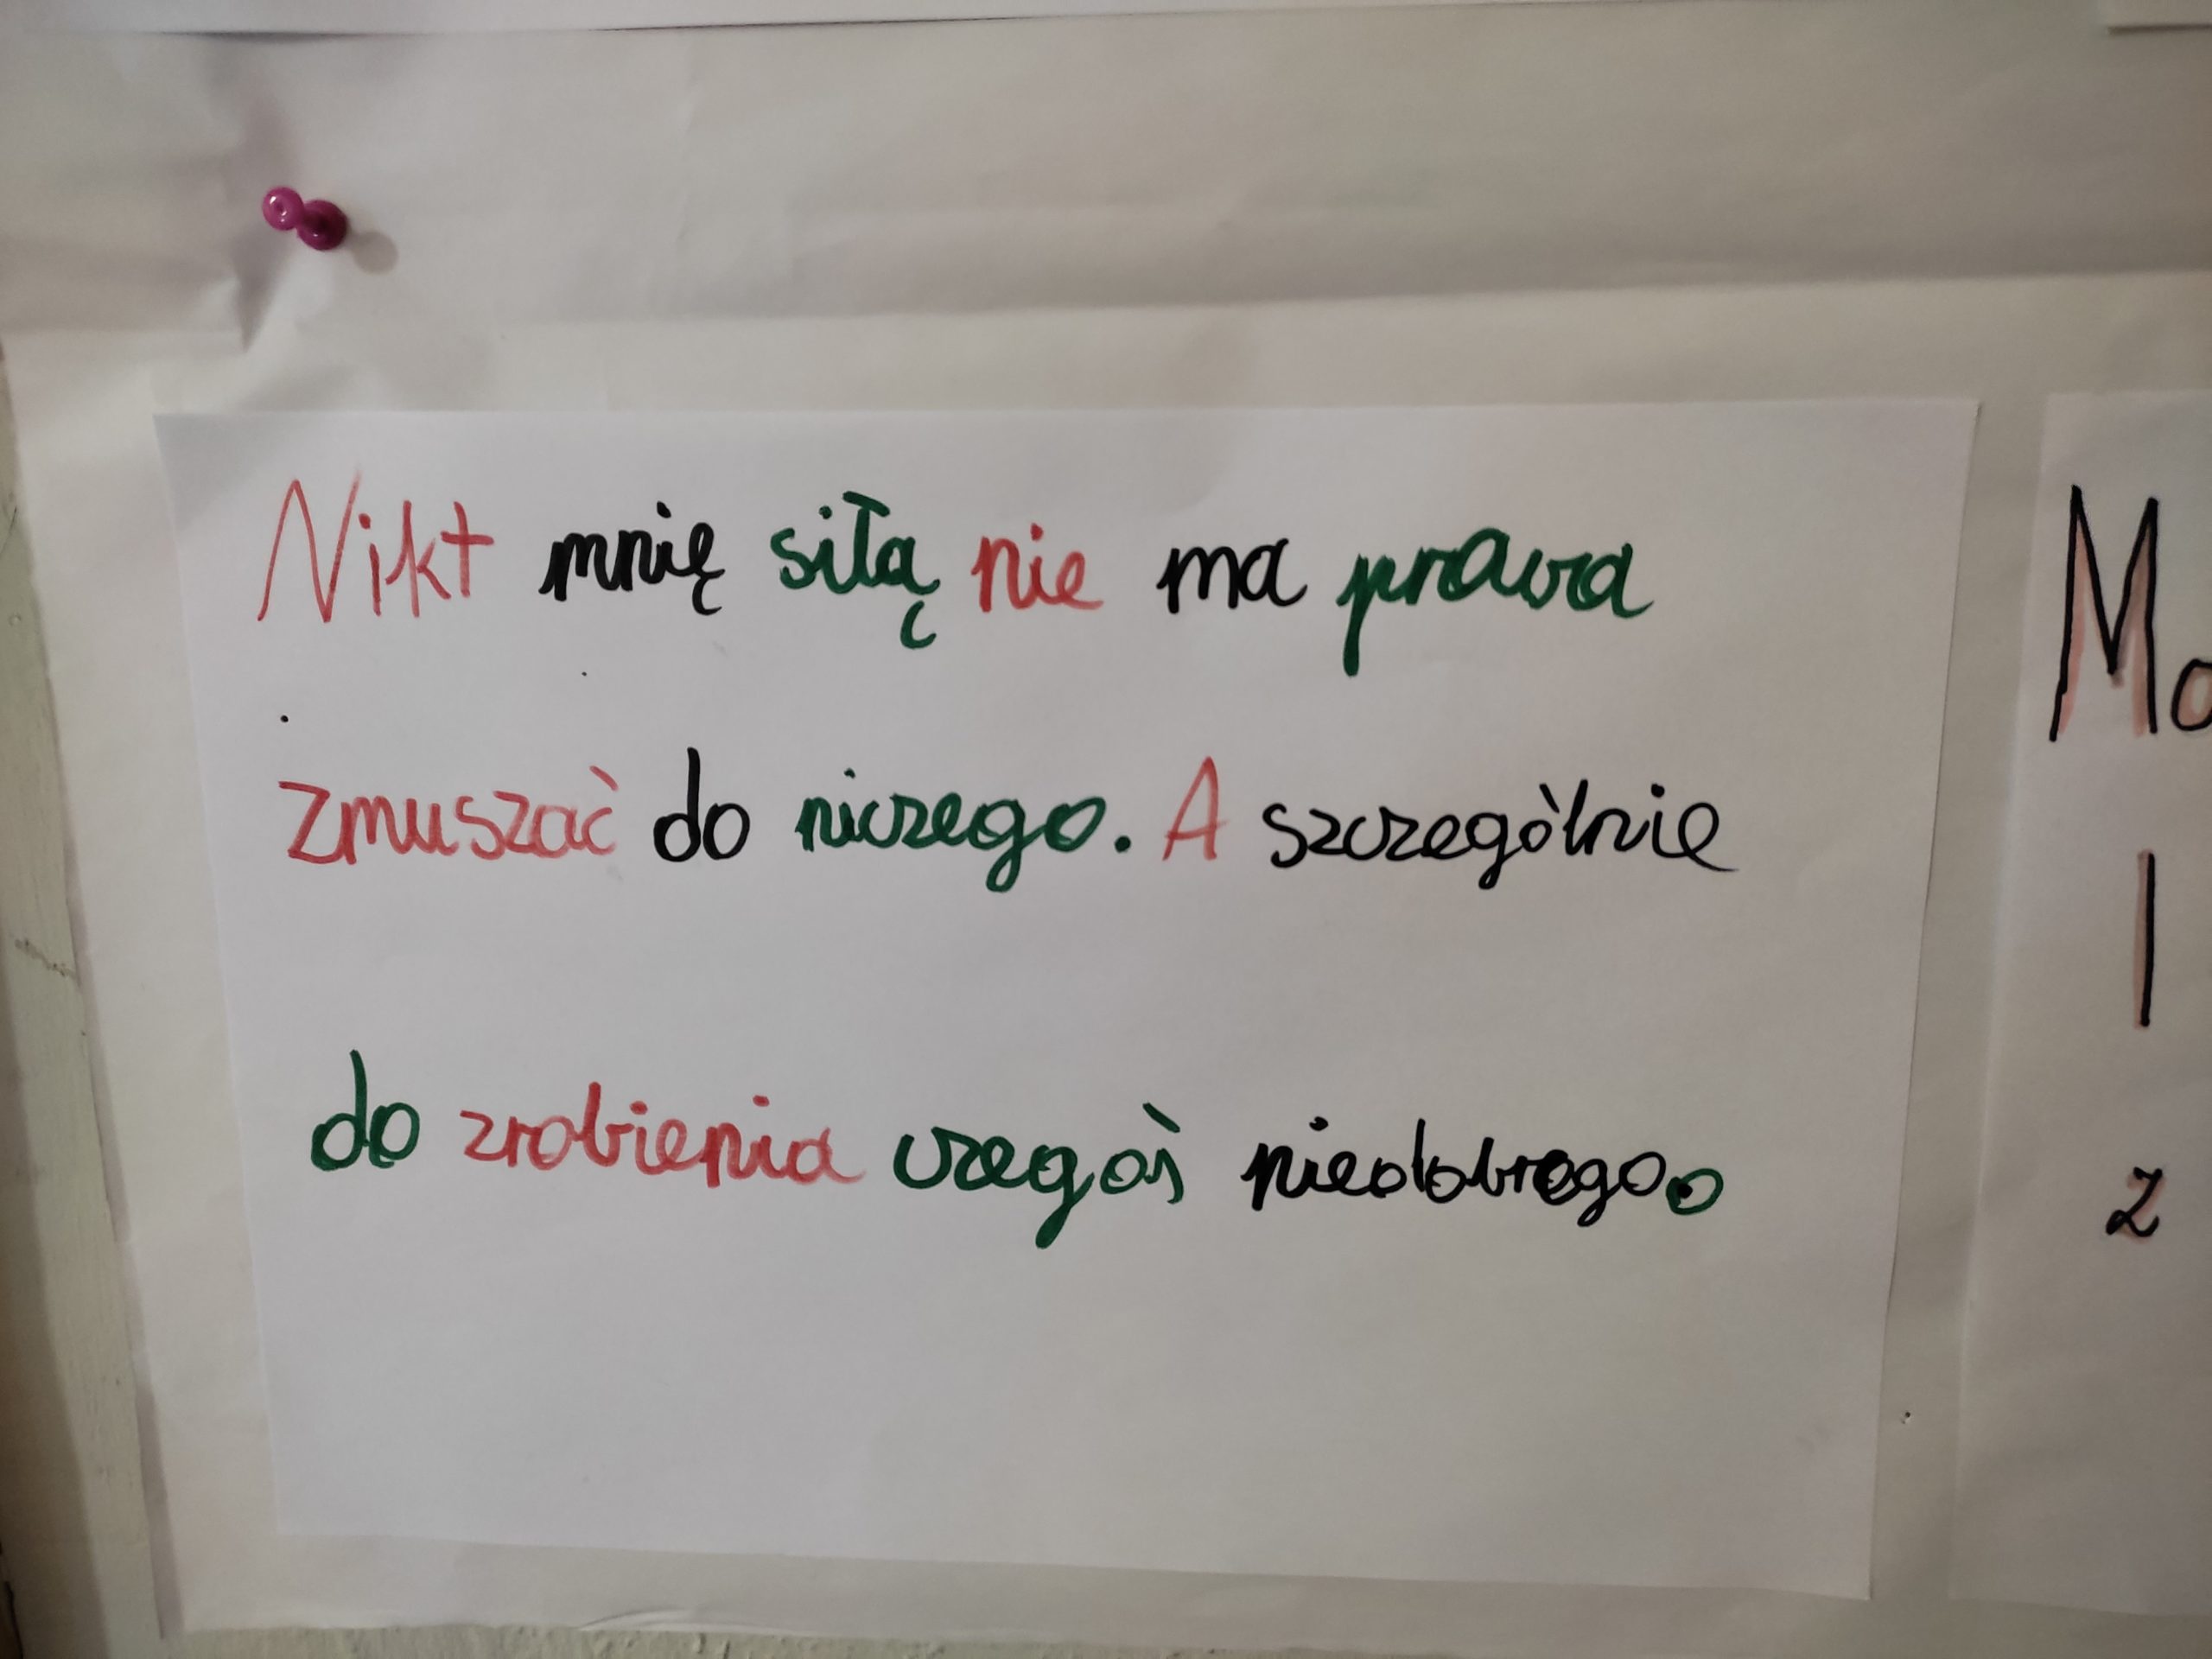 Nikt mnię siłą nie ma prawa
zmuszać do niczego. A szczególnie
do zrobienia czegoś niedobrego.